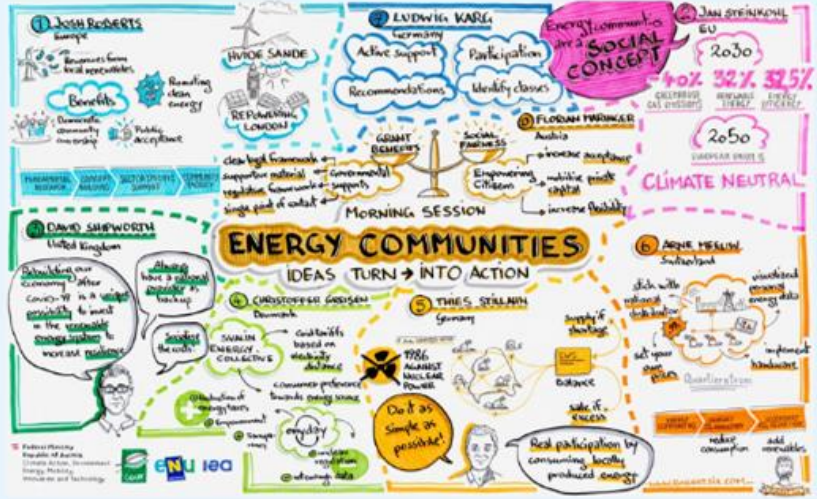 1 JOSH ROBERTS
Europe
Revenues from
local renewables
Benefits
Promoting
clean
energy
Democratic
community
ownership
Public
acceptance
HVIDE SANDE
REPOWERING
LONDON
FUNDAMENTAL
RESEARCH
CONCEPT
BUILDING
SECTOR SPECIFIC
SUPPORT
COMMUNITY
LUDWIG KARG
Germany
Active support
Participation
Recommendations
Identify classes
Energy communities
are a SOCIAL
CONCEPT
2 JAN STEINKOHL
EU
2030
40% 32% 32.5%
GREENHOUSE
GAS EMISSIONS
RENEWABLE
ENERGY
ENERGY
EFFICIENCY
2050
EUROPEAN UNION IS
CLIMATE NEUTRAL
FLORIAN MARINGER
Austria
GRANT
BENEFITS
SOCIAL
FAIRNESS
clear legal framework
supportive material
regulative framework
single point of contact
Governmental
supports
Empowering
Citizens
increase acceptance
mobilise private
capital
increase flexibility
MORNING SESSION
ENERGY COMMUNITIES
IDEAS TURN → INTO ACTION
DAVID SHIPWORTH
United Kingdom
Rebuilding our
economy after
Covid-19 is a unique
possibility to invest
in the renewable
energy system to
increase resilience.
Always
have a national
provider as
backup
Socialise
the costs.
4 CHRISTOFFER GREISEN
Denmark
SVALIN
ENERGY
COLLECTIVE
Cool tariffs
based on
electricity
distance
consumer preference
towards energy source
Reduction of
energy taxes
Empowerment
Transparency
regulation
5 THIES STILLAHN
Germany
1986
AGAINST
NUCLEAR
POWER
supply if
shortage
EWS
Balance
sale if
excess
Do it as
simple as
possible!
Real participation by
consuming locally
produced energy.
6 ARNE MEEUW
Switzerland
stick with
national
distributor
visualized
personal
energy data
set your
own
prices
implement
hardware
Quartierstrom
reduce
consumption
add
renewables
Federal Ministry
Republic of Austria
Climate Action, Environment
Energy, Mobility,
Innovation and Technology
iea